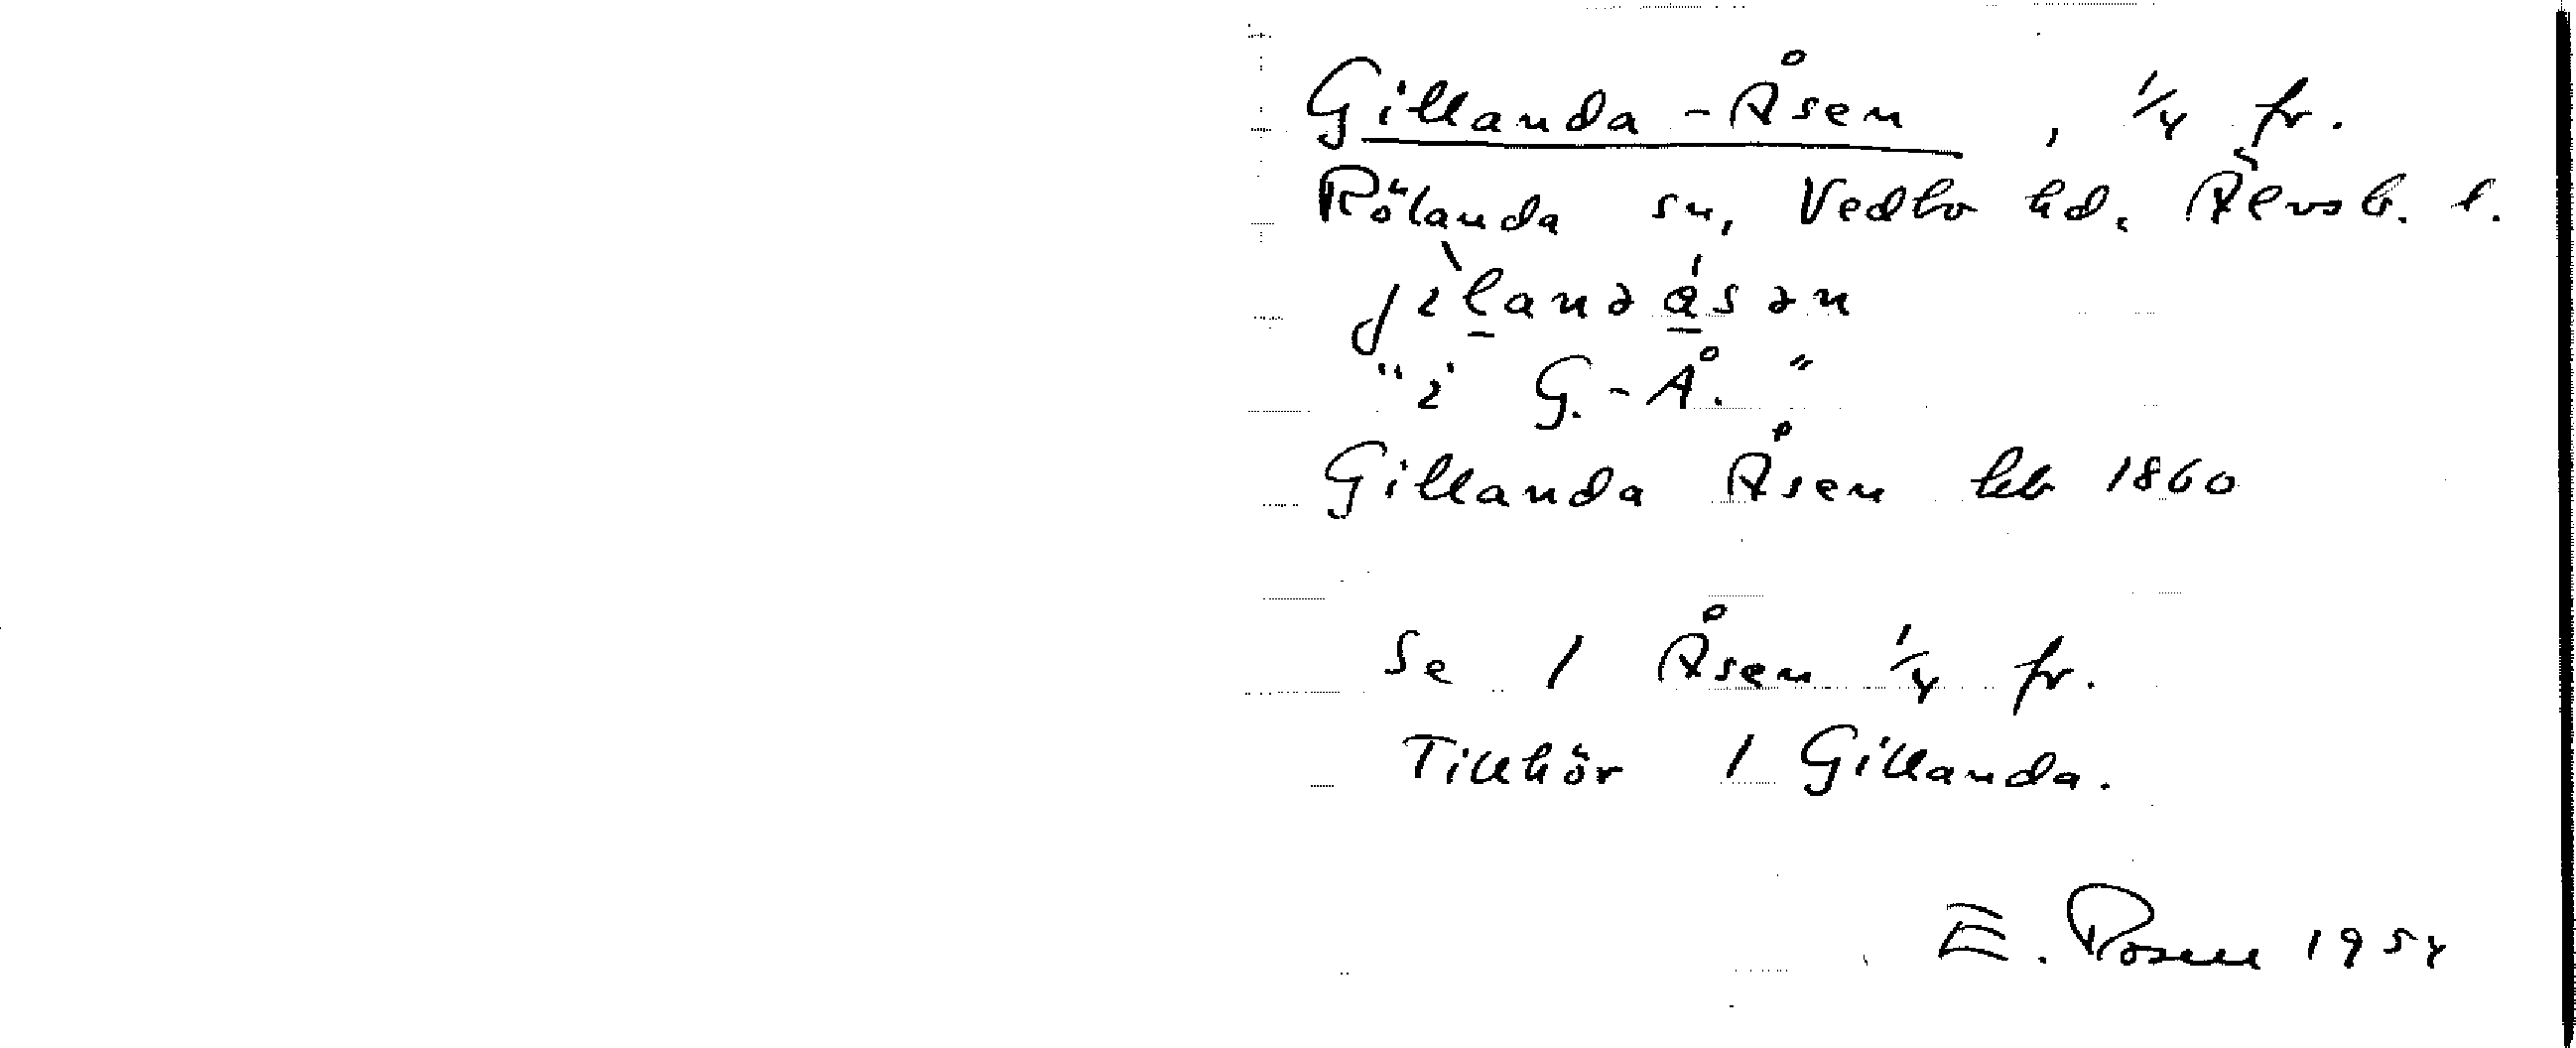 Gillanda-Åsen, 1/4 fr.
Rölanda sn, Vedbo hd. Älvsb. l.
jìlandåsən
"i G.-Å."
Gillanda Åsen hfb 1860
Se 1 Åsen 1/4 fr.
Tillhör 1 Gillanda.
E. Rosell 1954